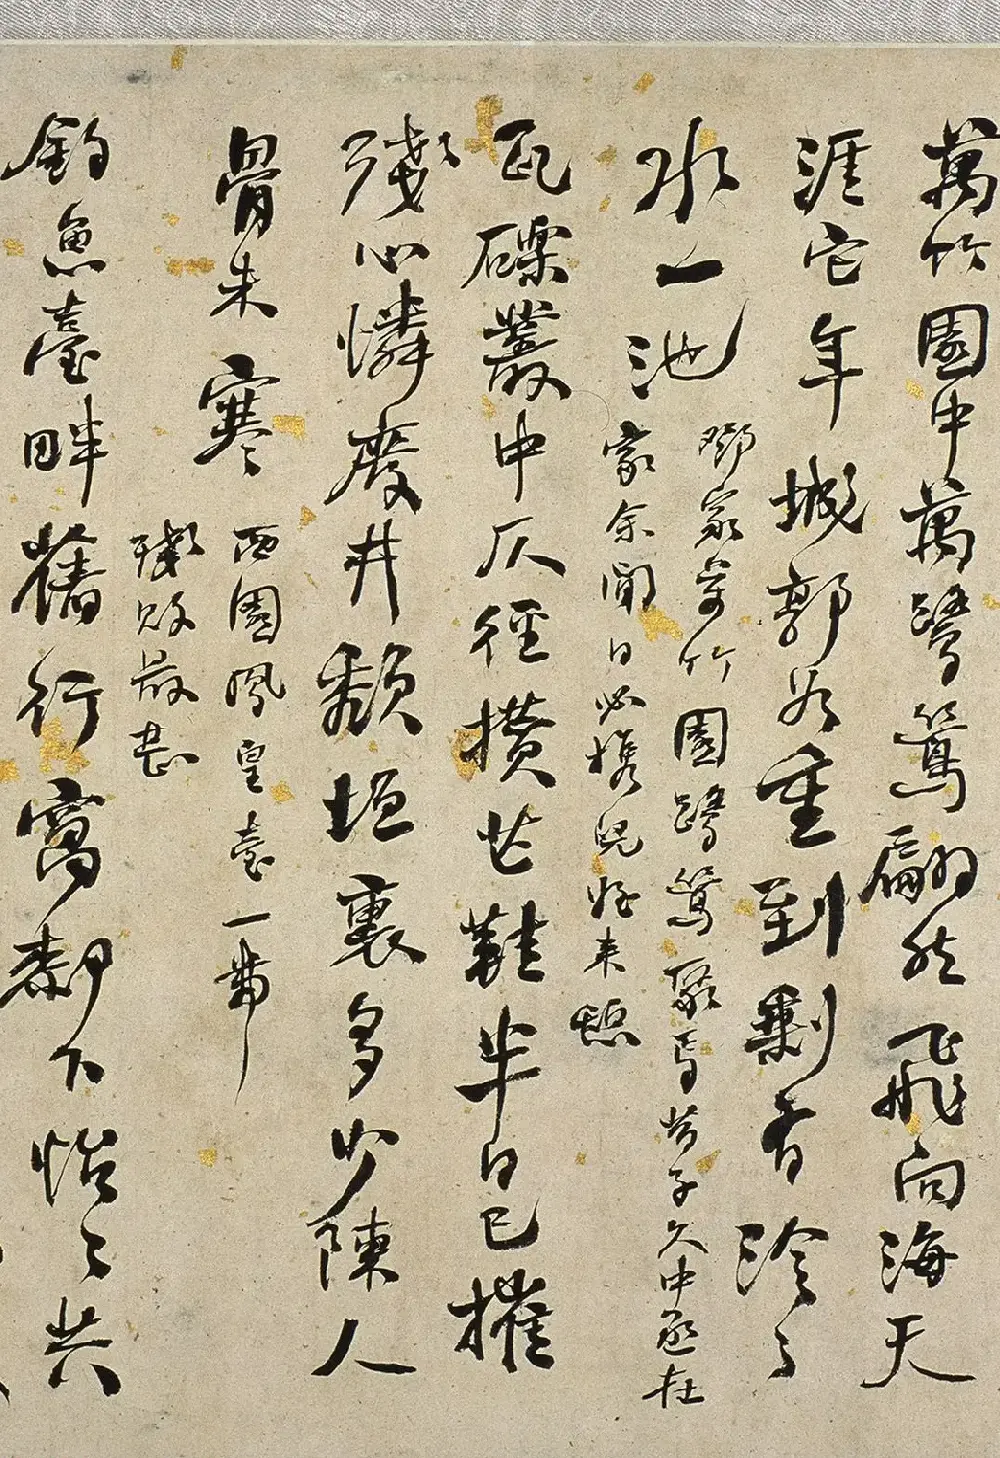 萬竹園中萬鷺鶿翩然飛向海天
涯它年城郭如重到剩有泠々
水一池
鄧家萬竹園鷺鶿聚焉昔子久中丞在
家余閒日必攜兒好來憩
瓦礫叢中仄徑攢芒鞋半日已摧
殘心憐廢井頹垣裏多少陳人
骨未寒
西園鳳皇臺一帶
殘敗最甚
釣魚臺畔舊行窩厀下怡々共